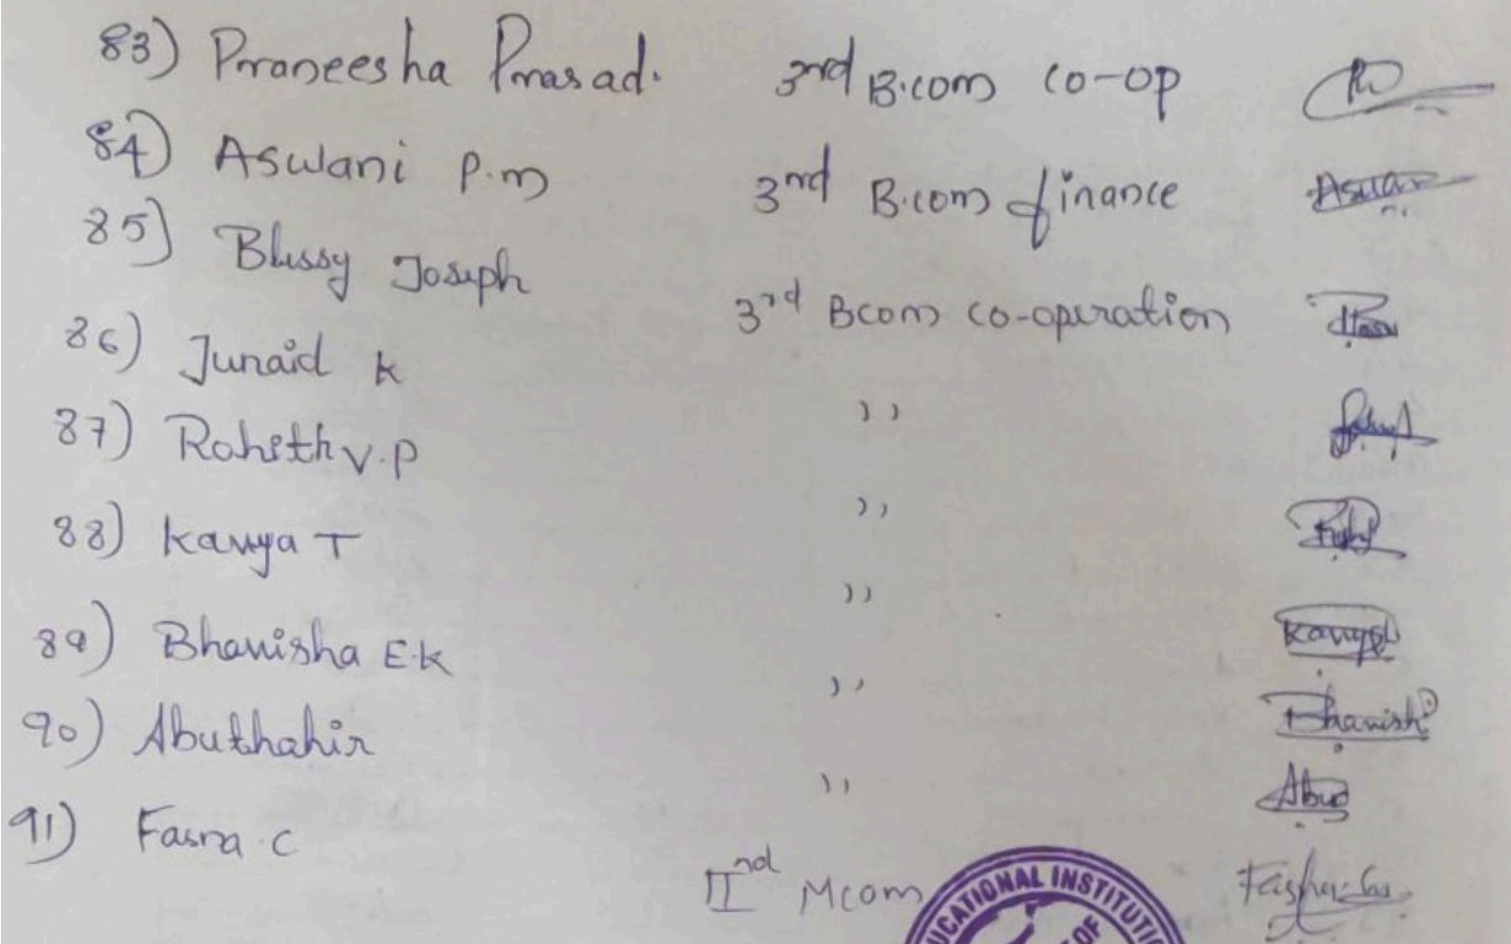 83) Praneesha Prasad. 3rd B.com co-op
84) Aswani P.m 3nd B.com finance Aswani
85) Blessy Joseph 3rd Bcom co-operation
86) Junaid k ,,
87) Rohith v.p ,,
88) Kavya T ,, Kavya
89) Bhavisha E.K ,, Bhavisha
90) Abuthahir ,, Abu
91) Fasna C IInd Mcom
UCATIONAL INSTITUTIO
OF